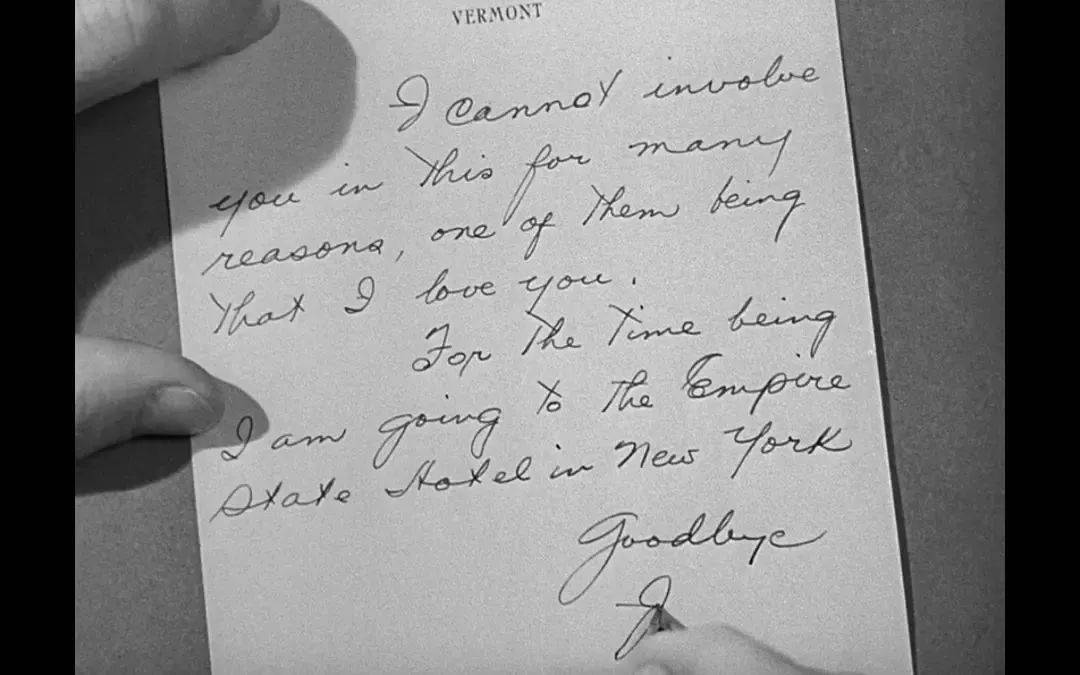 VERMONT
I cannot involve
you in this for many
reasons, one of them being
that I love you.
For the time being
I am going to the Empire
State Hotel in New York
Goodbye
J